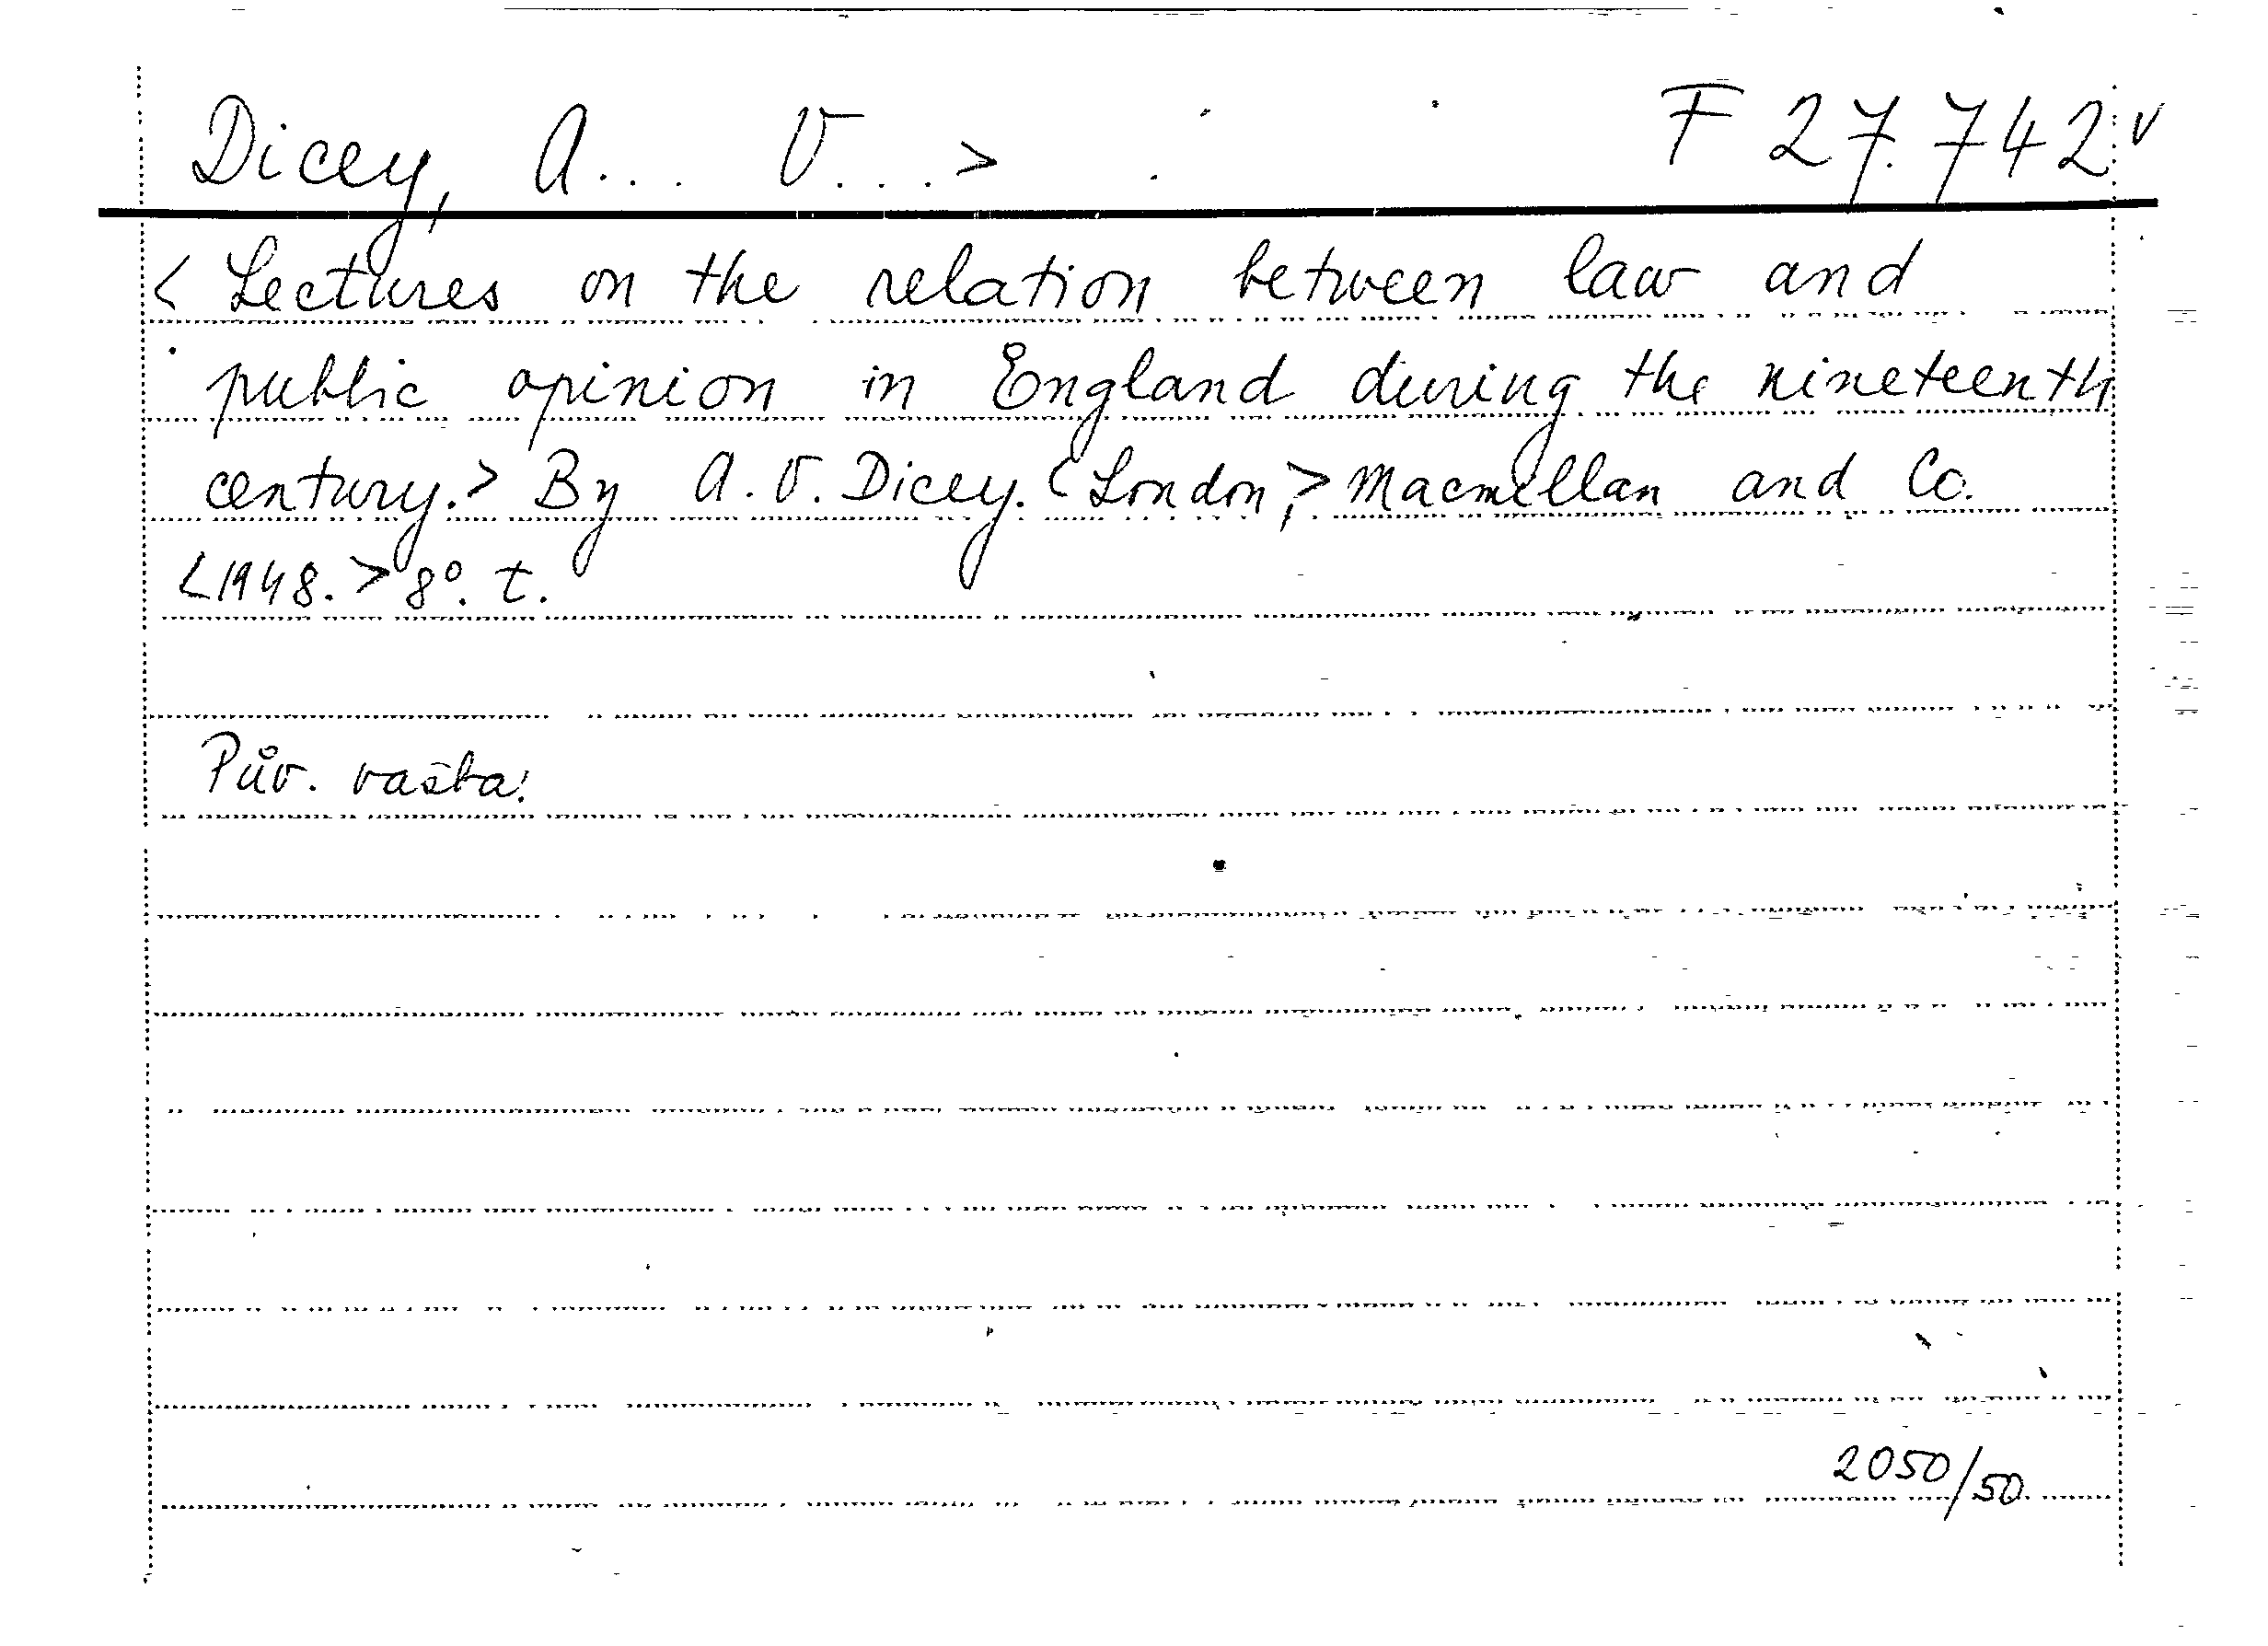 Dicey, A... V...> F 27.742 v
< Lectures on the relation between law and
public opinion in England during the nineteenth
century.> By A. V. Dicey. <London,> Macmillan and Co.
<1948.> 8°. t.
Pův. vazba.
2050/50